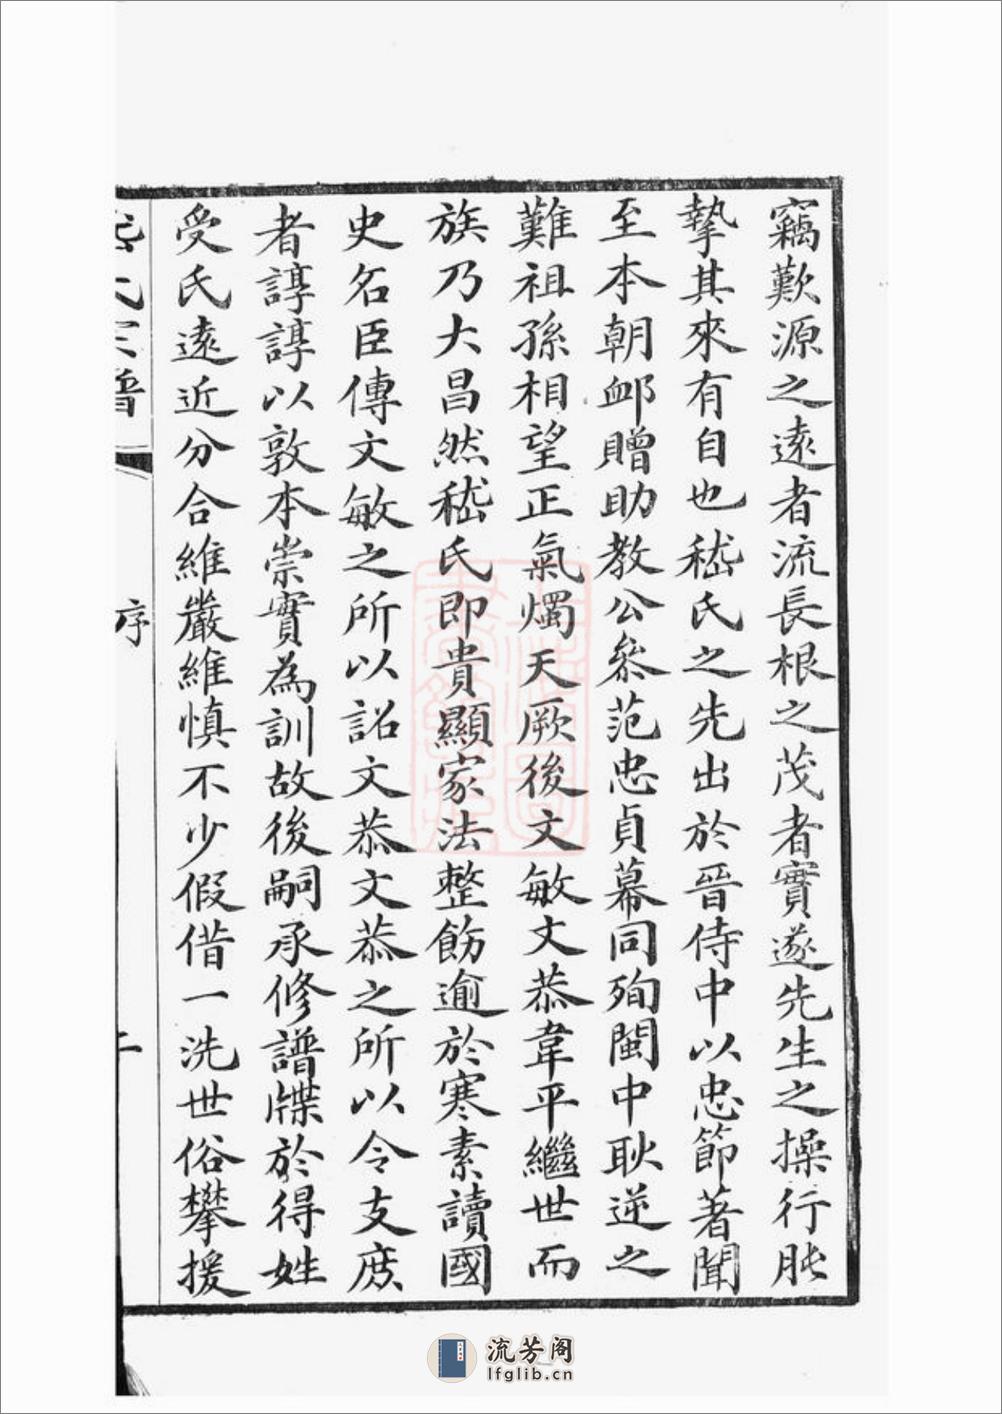 竊歎源之遠者流長根之茂者實遂先生之操行肫
摯其來有自也嵇氏之先出於晉侍中以忠節著聞
至本朝卹贈助教公叅范忠貞幕同殉閩中耿逆之
難祖孫相望正氣燭天厥後文敏文恭韋平繼世而
族乃大昌然嵇氏即貴顯家法整飭逾於寒素讀國
史名臣傳文敏之所以詔文恭文恭之所以令支庶
者諄諄以敦本崇實為訓故後嗣承修譜牒於得姓
受氏遠近分合維嚴維慎不少假借一洗世俗攀援
氏宗譜
序
流芳阁
lfglib.cn